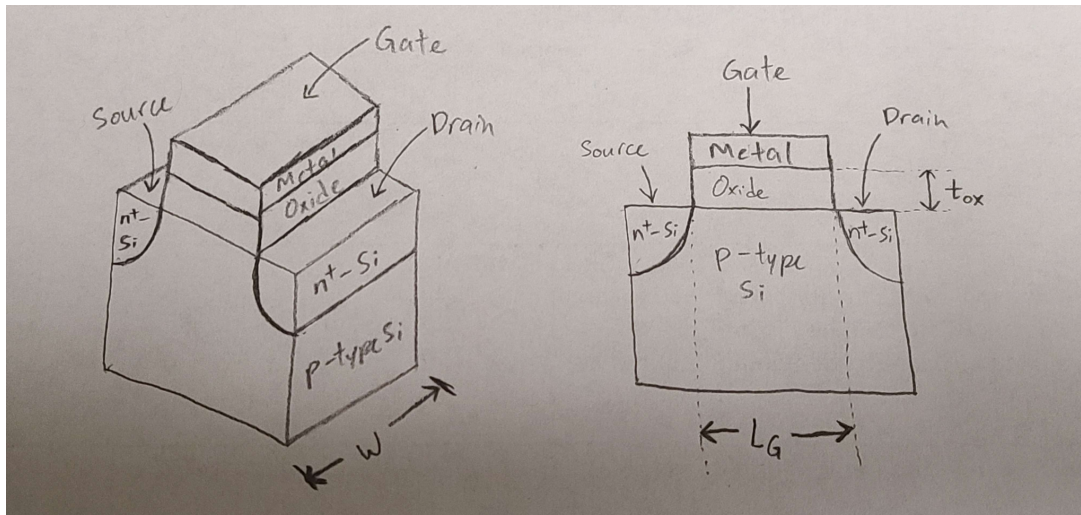 Gate
Source
Drain
Metal
Oxide
n⁺-
Si
n⁺-Si
p-type Si
W
Gate
Source
Drain
Metal
Oxide
tox
n⁺-Si
n⁺-Si
p-type
Si
LG